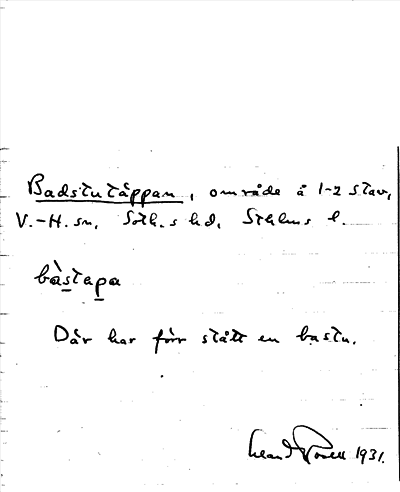 Badstutäppan, område å 1-2 Stav,
V.-H. sn, Soth.s hd, Sthlms l.
bàstapa
Där har förr stått en bastu.
1931.